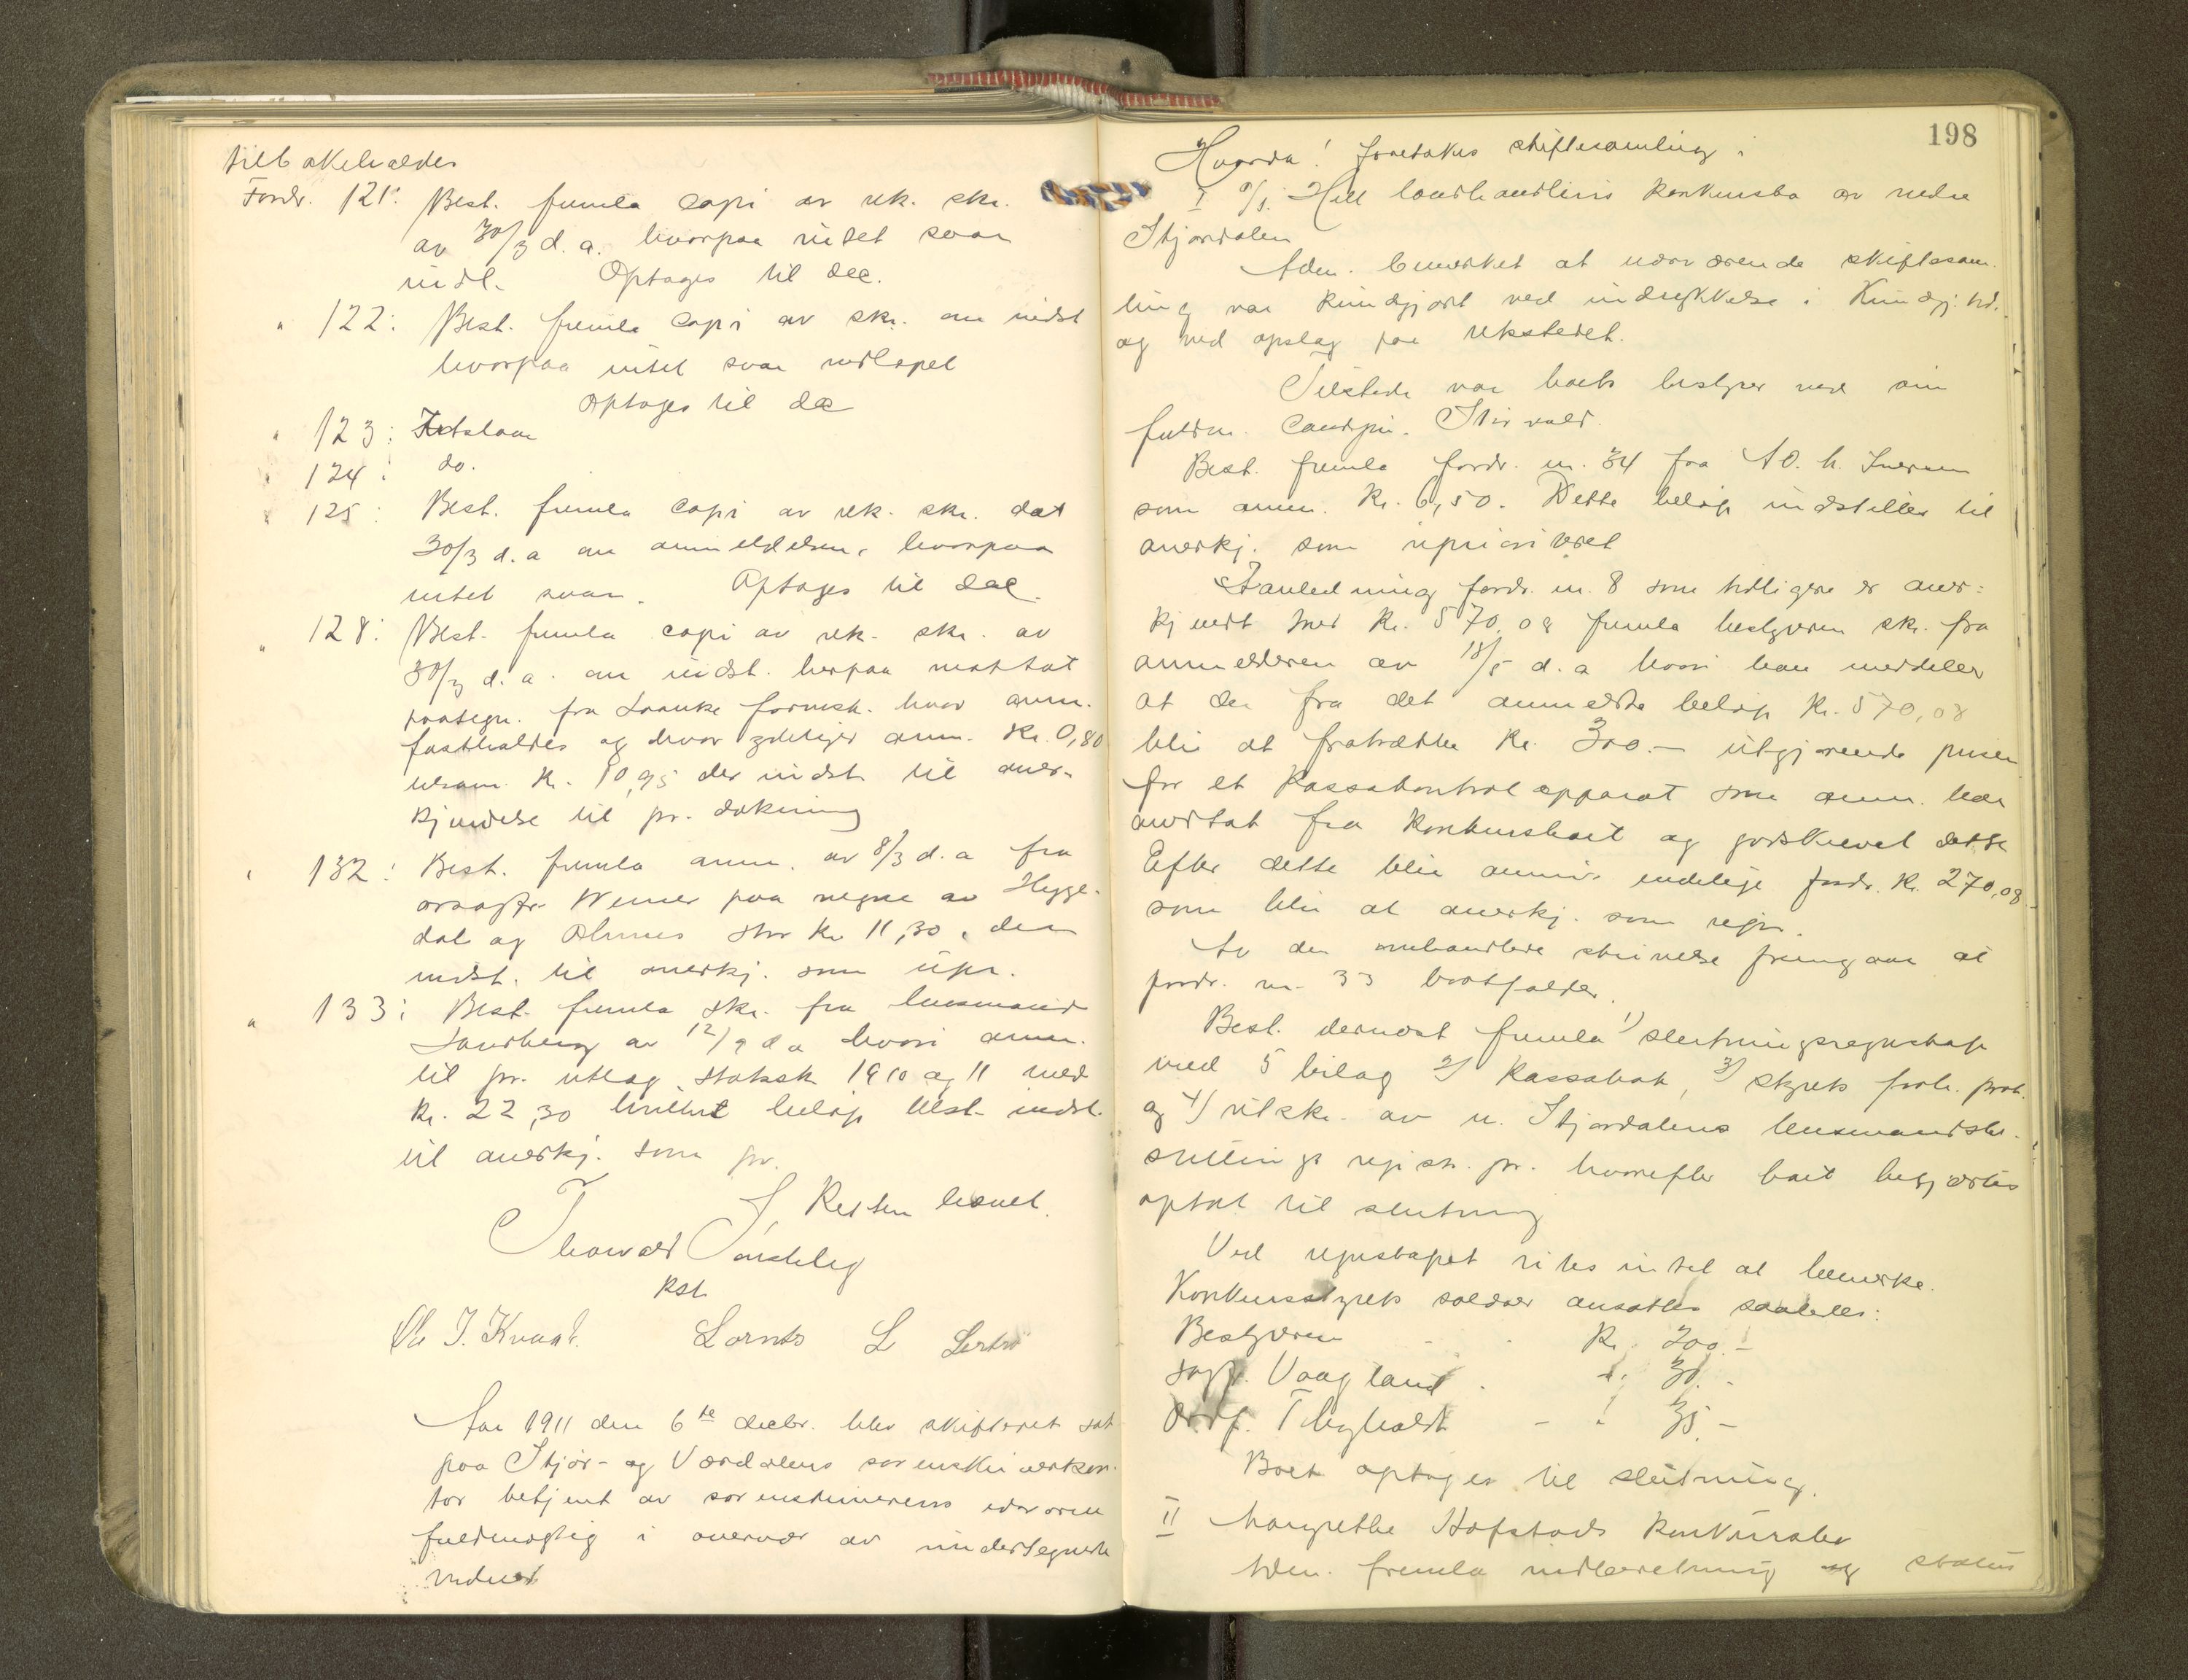 tilbakeholdes
Fordr. 121: Best. fremla copi av rek. skr.
av 30/3 d. a. hvorpaa intet svar
indl. Optages til dec.
" 122: Best. fremla copi av skr. om indst
hvorpaa intet svar indløpet
Optages til dec
" 123: Istaloar
" 124: do.
" 125: Best. fremla copi av rek. skr. dat
30/3 d. a om anmeldelsen, hvorpaa
intet svar. Optages til dec.
" 128: Best. fremla copi av rek. skr. av
30/3 d. a. om indst. herpaa mottat
paategn. fra hvor anm.
fastholdes og hvor ydeligere anm. Kr. 0,80
tilsam. Kr. 10,95 der indst. til aner-
kjendelse til pr. dækning
" 132: Best. fremla anm. av 8/3 d. a fra
orsagfr. Werner paa vegne av Hygge-
dal og Olsnes stor Kr 11,30, den
indst. til anerkj. som upr.
" 133: Best. fremla skr. fra lensmand
Sandberg av 12/9 d a hvori anm.
til pr. utlæg statssk. 1910 og 11 med
Kr. 22,30 hvilket beløp blst. indst.
til anerkj. som pr.
Retten hævet.
Thorvald
Kst.
Ole J. Kvaal. Lornts L
Aar 1911 den 6te decbr. blev skifteret sat
paa Stjør- og Værdalens sorenskriverkon-
tor betjent av sorenskriverens edsvorne
fuldmægtig i overvær av undertegnede
vidner
198
Hvorda! foretakes skiftesamling i
I A/S. Hell landhandleris konkursbo av nedre
Stjørdalen
Adm. bemerket at nærværende skiftesam-
ling var kundgjort ved indrykkelse i Kundgj. tid.
og ved opslag paa rekstedet.
Tilstede var boets bestyrer ved sin
fuldm. Cand. jur.
Best. fremla fordr. nr. 34 fra A O. h. Iversen
som anm. Kr. 6,50. Dette beløp indstilles til
anerkj. som uprioritert
I anledning fordr. nr. 8 som tidligere er aner-
kjendt med Kr. 570,08 fremla bestyreren skr. fra
anmelderen av 18/5 d. a hvori han meddeler
at der fra det anmeldte beløp Kr. 570,08
blir at fratrække Kr. 300.- utgjørende prisen
for et Kassakontrolapparat som anm. har
mottat fra konkursboet og godskrevet dette
Efter dette blir anm.s endelige fordr. Kr. 270,08
som blir at anerkj. som upr.
Av den omhandlede skrivelse fremgaar at
fordr. nr. 33 bortfalder.
Best. dernæst fremla 1) slutningsregnskap
med 5 bilag 2) Kassabok, 3) styrets forh. prot.
og 4) utskr. av n. Stjørdalens lensmandsbe-
stillings regist. pr. hvorefter boet begjærtes
optat til slutning
Ved regnskapet vites intet at bemerke.
Konkursstyrets salær ansattes saaledes:
Bestyreren Kr. 200.-
sagf. Vaagland " 30.-
Ordf. Thyholdt - " 35.-
Boet optages til slutning.
II Margrethe Hofstads Konkursbo
Adm. fremla indberetning og status